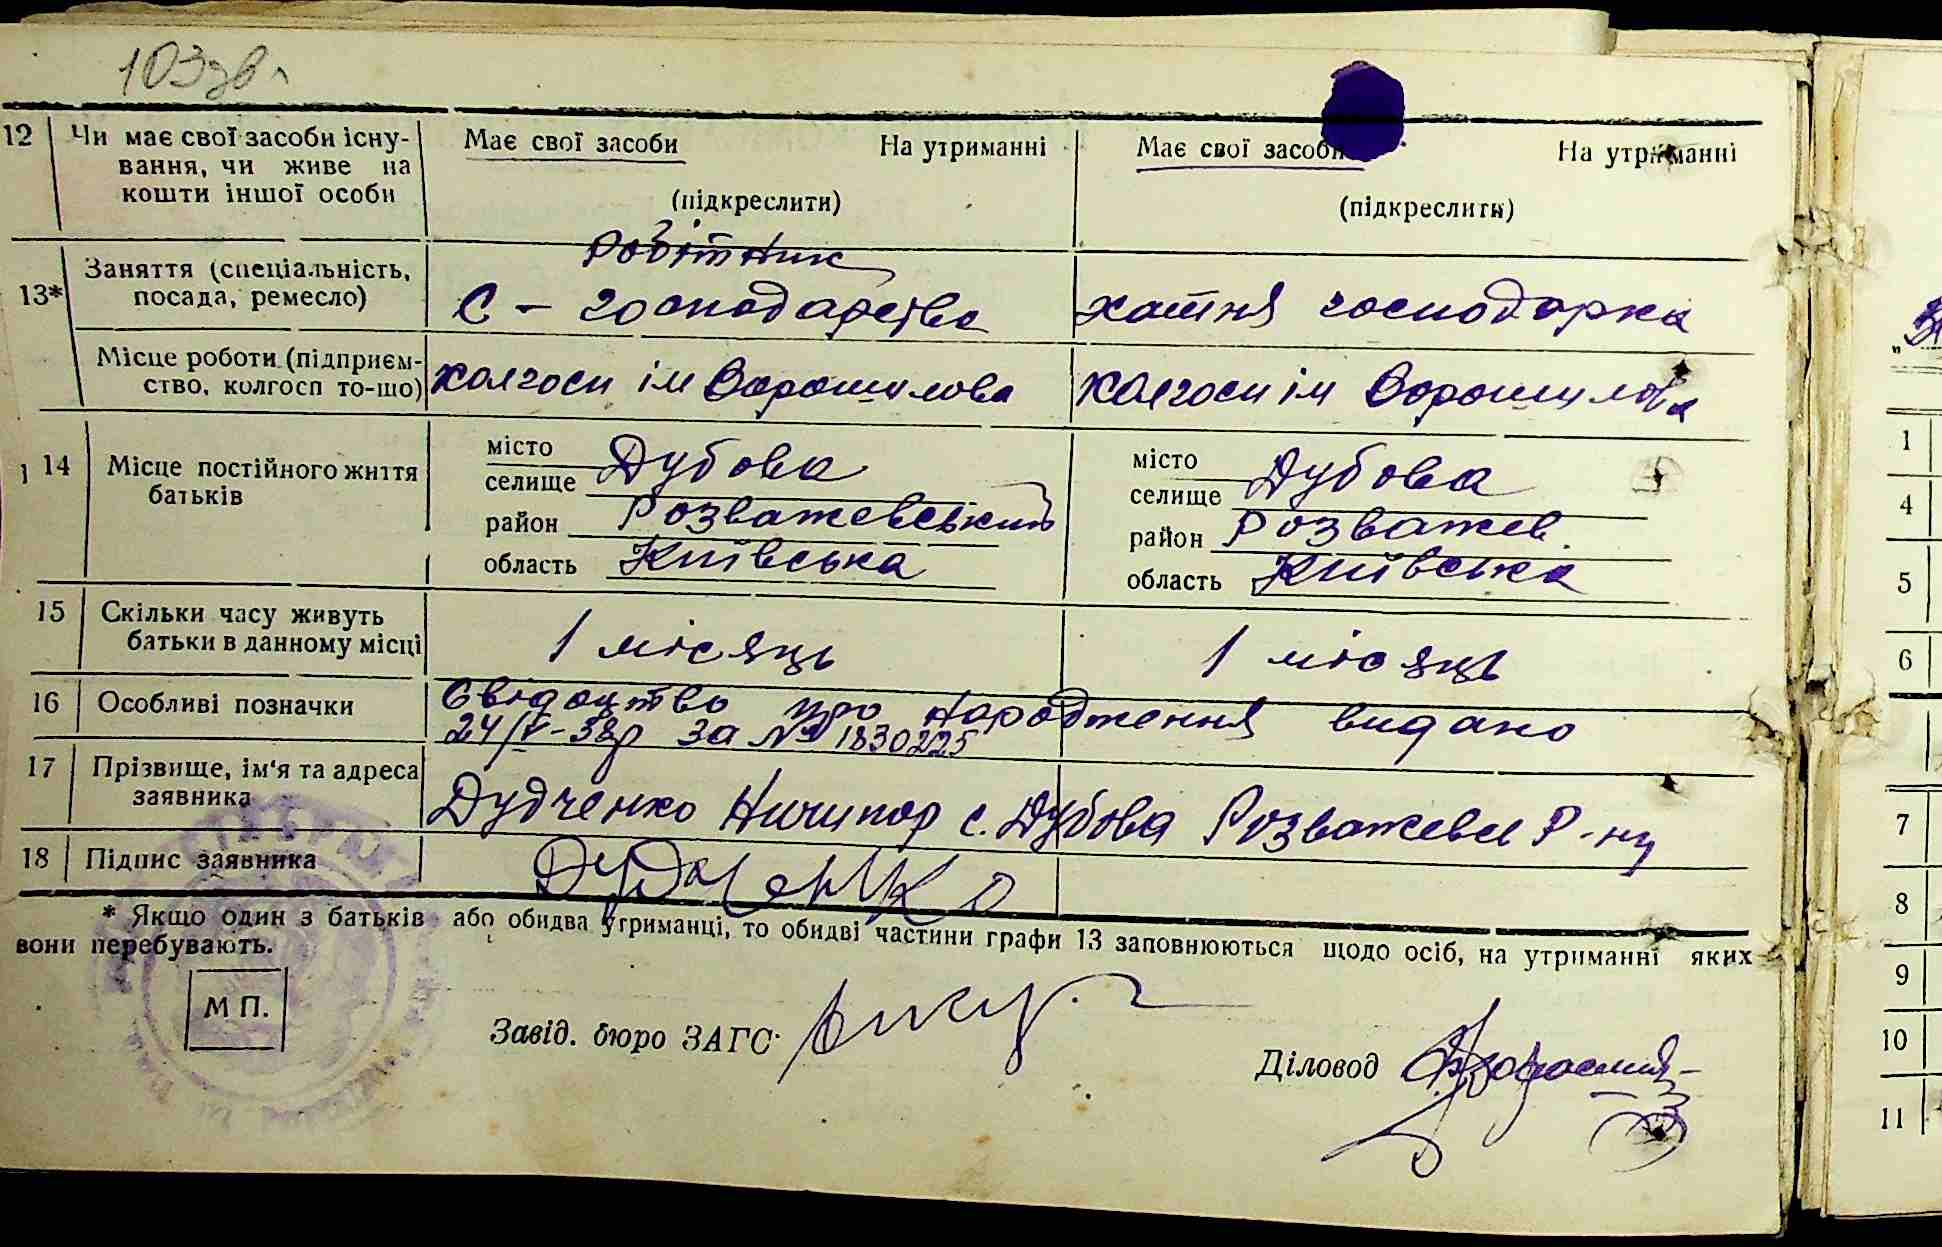 103зв
12 Чи має свої засоби існу- Має свої засоби На утриманні Має свої засоби На утриманні
вання, чи живе на
кошти іншої особи (підкреслити) (підкреслити)
Робітник
13* Заняття (спеціальність,
посада, ремесло) С - господарства хатня господарка
Місце роботи (підприєм-
ство, колгосп то-що) колгосп ім Ворошилова колгосп ім Ворошилова
14 Місце постійного життя
батьків
місто
селище Дубова
район Розважевський
область Київська
місто
селище Дубова
район Розважев.
область Київська
15 Скільки часу живуть
батьки в данному місці 1 місяць 1 місяць
16 Особливі позначки Свідоцтво про народження видано
24/V-38р за № 1830225
17 Прізвище, ім'я та адреса
заявника Дудченко Ничипор с. Дубова Розважевс Р-ну
18 Підпис заявника Дудченко
* Якщо один з батьків або обидва утриманці, то обидві частини графи 13 заповнюються щодо осіб, на утриманні яких
вони перебувають.
М П.
Завід. бюро ЗАГС
Діловод
1
4
5
6
7
8
9
10
11